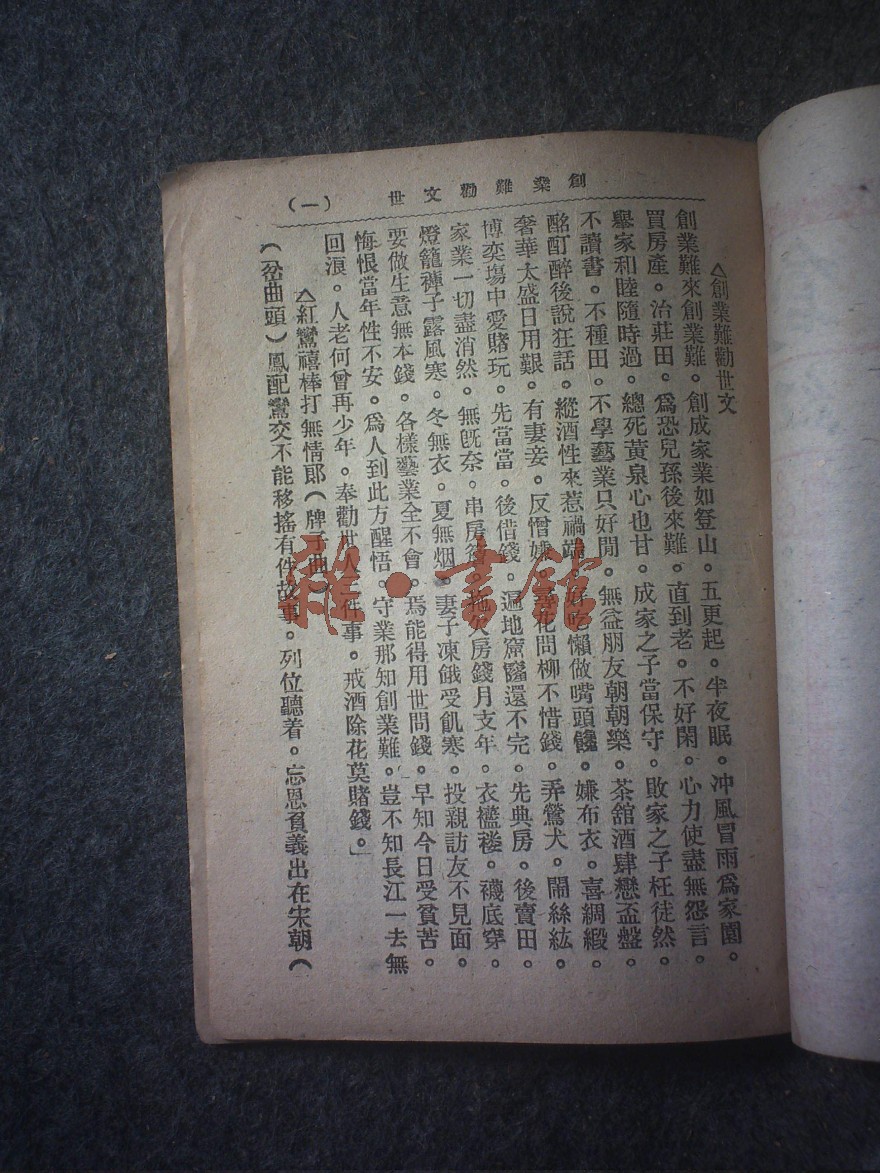 創業難勸文世
(一)
△創業難勸世文
創業難來創業難。創成家業如登山。五更起。半夜眠。冲風冒雨爲家園。
買房產。治莊田。爲恐兒孫後來難。直到老。不好閑。心力使盡無怨言。
舉家和睦隨時過。總死黃泉心也甘。成家之子當保守。敗家之子枉徒然。
不讀書。不種田。不學藝業只好閒。無益朋友朝朝樂。茶舘酒肆戀盃盤。
酩酊醉後說狂話。縱酒性來惹禍端。好吃懶做嘴頭饞。嫌布衣。喜綢緞。
奢華太盛日用艱。有妻妾。反憎嫌。尋花問柳不惜錢。弄鶯犬。鬧絲絃。
博奕塲中愛賭玩。先當當。後借錢。遍地窟窿還不完。先典房。後賣田。
家業一切盡消然。無旣奈。串房簷。拖欠房錢月支年。衣襤褸。襪底穿。
燈籠褲子露風寒。冬無衣。夏無烟。妻子凍餓受飢寒。投親訪友不見面。
要做生意無本錢。各樣藝業全不會。焉能得用世問錢。早知今日受貧苦。
悔恨當年性不安。爲人到此方醒悟。守業那知創業難。豈不知長江一去無
回浪。人老何曾再少年。奉勸世人一件事。戒酒除花莫賭錢。」
△紅鸞禧棒打無情郎(牌子曲)
(岔曲頭)鳳配鸞交不能移搖有件故事。列位聽着。忘恩負義出在宋朝(
雜·書舘